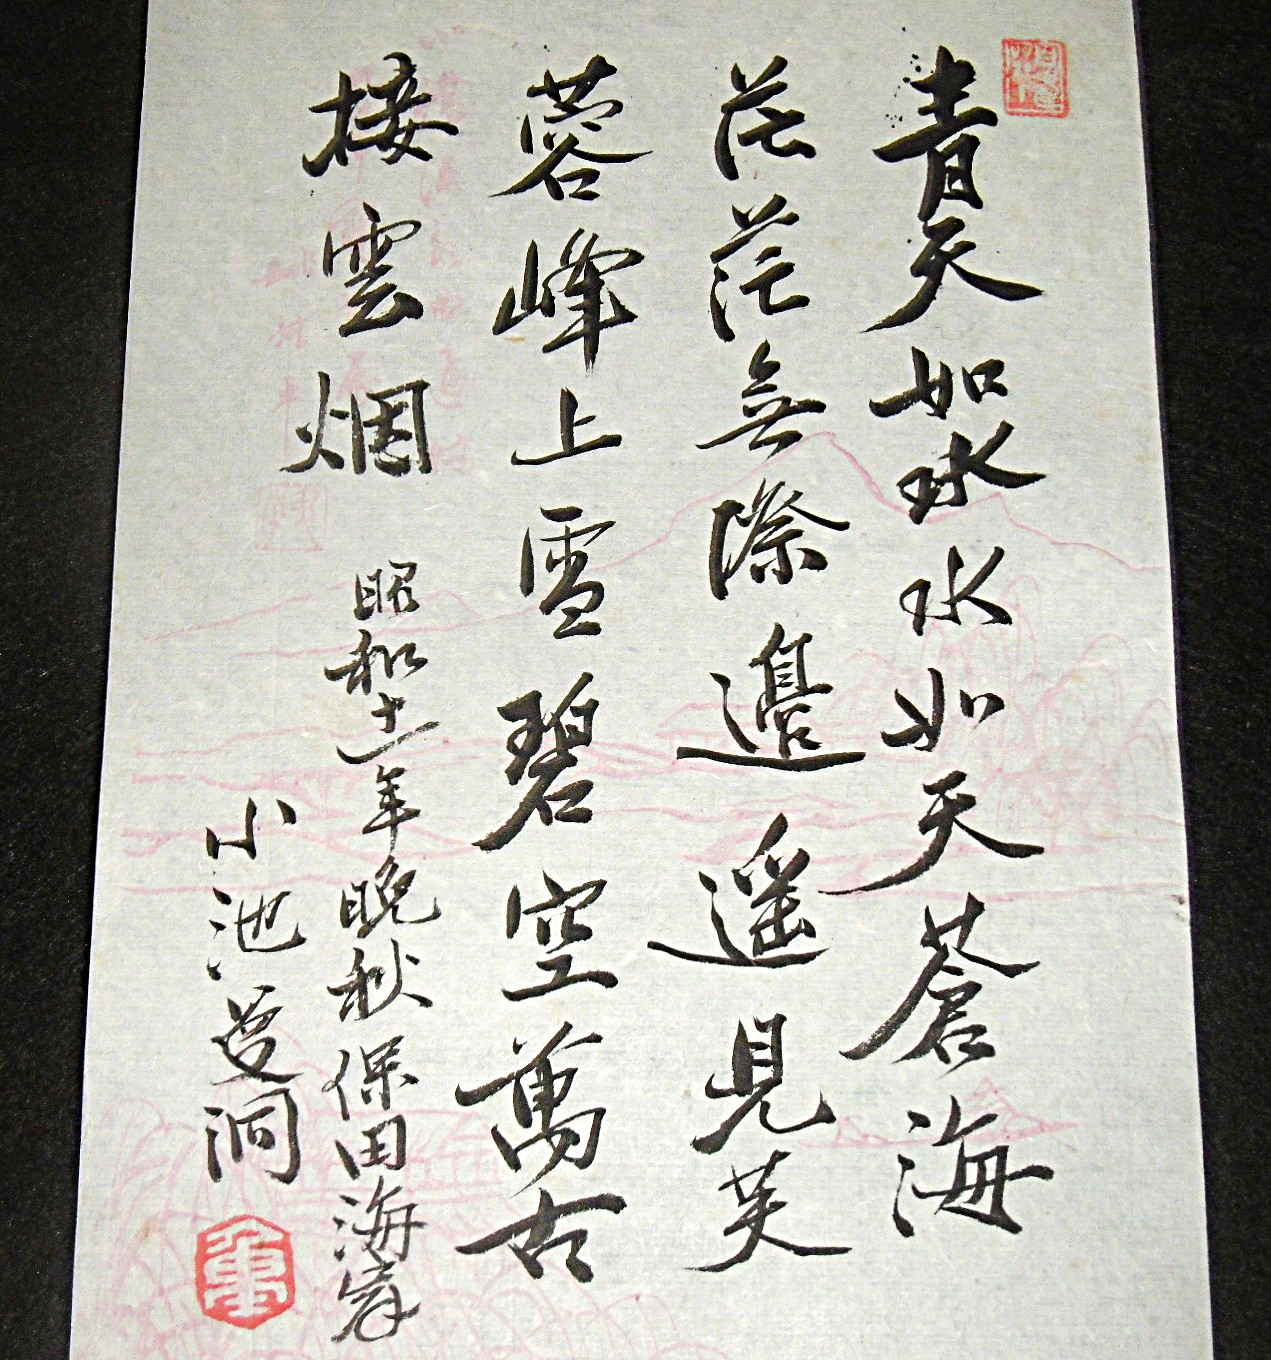 青天如水水如天蒼海
茫茫無際邊遥見芙
蓉峰上雪碧空萬古
接雲烟
昭和十一年晩秋保田海岸
小池曼洞